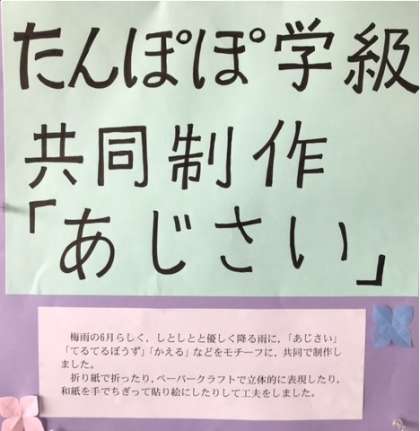 たんぽぽ学級
共同制作
「あじさい」
梅雨の6月らしく，しとしとと優しく降る雨に，「あじさい」
「てるてるぼうず」「かえる」などをモチーフに，共同で制作し
ました。
折り紙で折ったり，ペーパークラフトで立体的に表現したり，
和紙を手でちぎって貼り絵にしたりして工夫をしました。